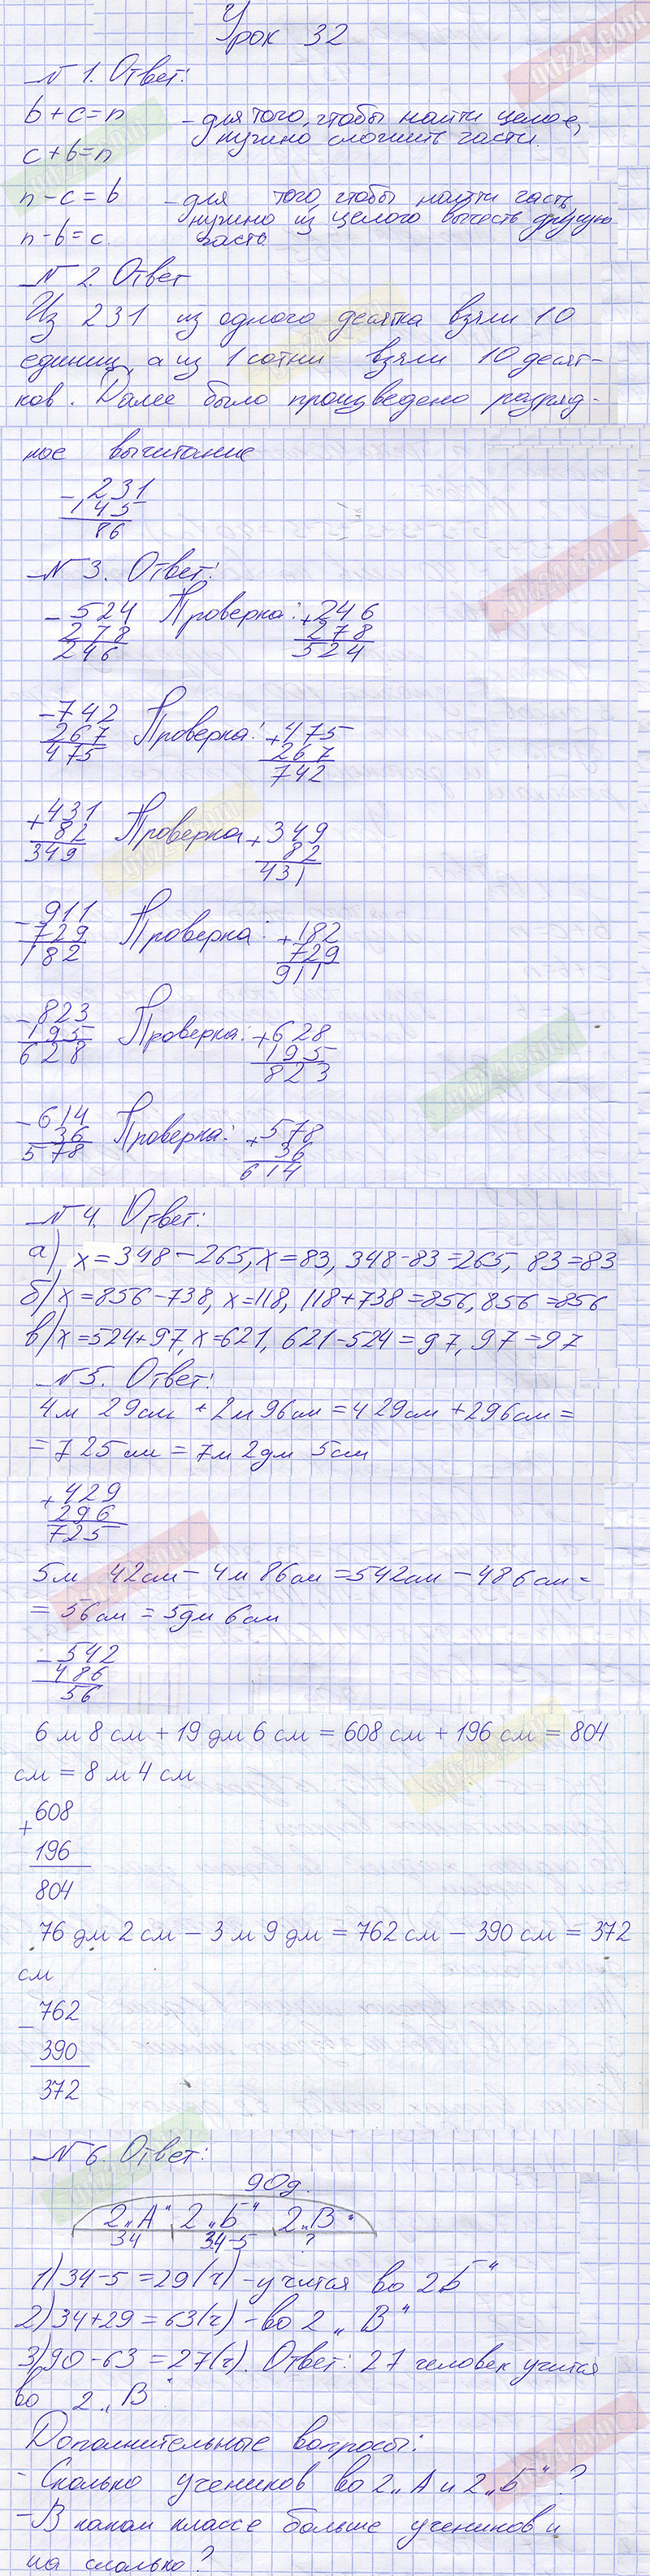 Урок 32
№ 1. Ответ:
b+c=n - для того, чтобы найти целое,
нужно сложить части.
c+b=n
n-c=b - для того, чтобы найти часть,
нужно из целого вычесть другую
n-b=c. часть
№ 2. Ответ
Из 231 из одного десятка взяли 10
единиц, а из 1 сотни взяли 10 десят-
ков. Далее было произведено разряд-
ное вычитание
- 231
145
86
№ 3. Ответ:
- 524 Проверка: + 246
278 278
246 524
- 742 Проверка: + 475
267 267
475 742
+ 431 Проверка + 349
82 82
349 431
- 911 Проверка: + 182
729 729
182 911
- 823 Проверка: + 628
195 195
628 823
- 614 Проверка: + 578
36 36
578 614
№ 4. Ответ:
а) x=348-265, x=83, 348-83=265, 83=83
б) x=856-738, x=118, 118+738=856, 856=856
в) x=524+97, x=621, 621-524=97, 97=97
№ 5. Ответ:
4м 29см + 2м 96см = 429см + 296см =
= 725см = 7м 2дм 5см
+ 429
296
725
5м 42см - 4м 86см = 542см - 486см =
= 56см = 5дм 6см
- 542
486
56
6 м 8 см + 19 дм 6 см = 608 см + 196 см = 804
см = 8 м 4 см
608
+
196
804
76 дм 2 см - 3 м 9 дм = 762 см - 390 см = 372
см
762
-
390
372
№ 6. Ответ:
90д.
2„А“ 2„Б“ 2„В“
34 34-5 ?
1) 34-5=29(ч) - учится во 2Б“
2) 34+29=63(ч) - во 2 „В“
3) 90-63=27(ч). Ответ: 27 человек учится
во 2 „В“.
Дополнительные вопросы:
- Сколько учеников во 2„А и 2„Б“?
- В каком классе больше учеников и
на сколько?